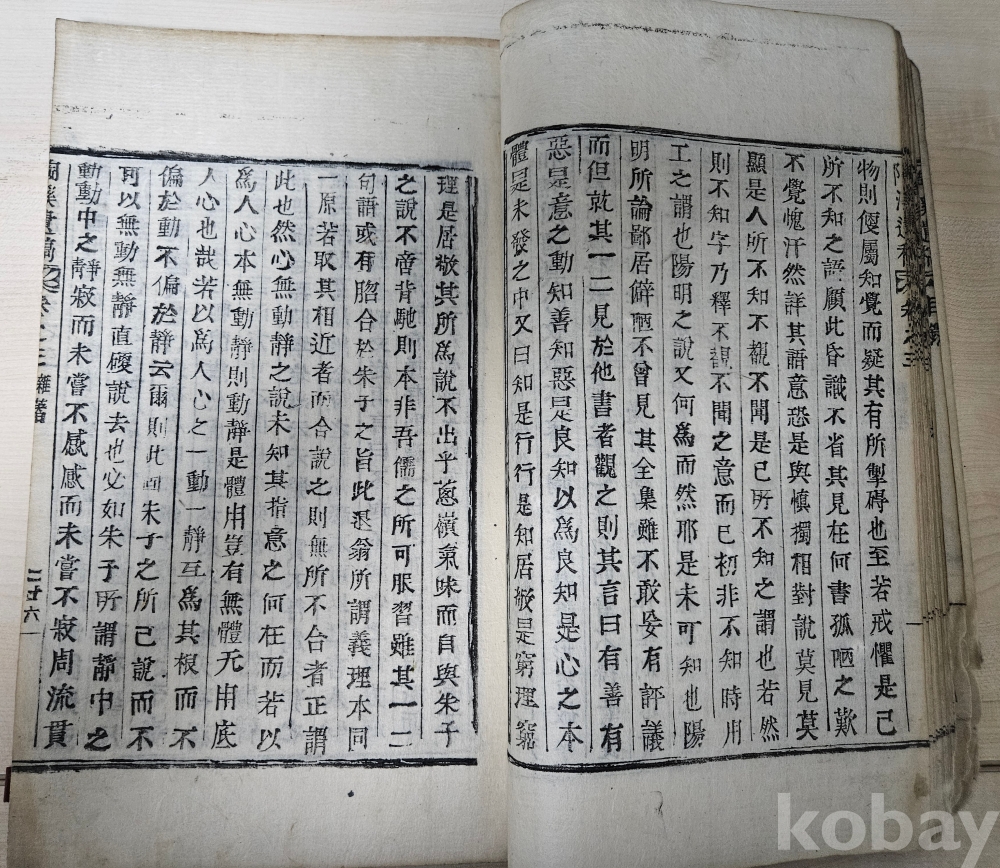 物則便屬知覺而疑其有所掣碍也至若戒懼是己
所不知之語顧此昏識不省其見在何書孤陋之歎
不覺愧汗然詳其語意恐是與愼獨相對說莫見莫
顯是人所不知不覩不聞是已所不知之謂也若然
則不知字乃釋不覩不聞之意而已初非不知時用
工之謂也陽明之說又何爲而然耶是未可知也陽
明所論鄙居僻陋不曾見其全集雖不敢妄有評議
而但就其一二見於他書者觀之則其言曰有善有
惡是意之動知善知惡是良知以爲良知是心之本
體是未發之中又曰知是行行是知居敬是窮理窮
理是居敬其所爲說不出乎蔥嶺氣味而自與朱子
之說不啻背馳則本非吾儒之所可服習雖其一二
句語或有脗合於朱子之旨此退翁所謂義理本同
一原若取其相近者而合說之則無所不合者正謂
此也然心無動靜之說未知其指意之何在而若以
爲人心本無動靜則動靜是體用豈有無體无用底
人心也哉若以爲人心之一動一靜互爲其根而不
偏於動不偏於靜云爾則此固朱子之所已說而不
可以無動無靜直礙說去也必如朱子所謂靜中之
動動中之靜寂而未嘗不感感而未嘗不寂周流貫
遺稿 卷之三 雜著
二十六
kobay